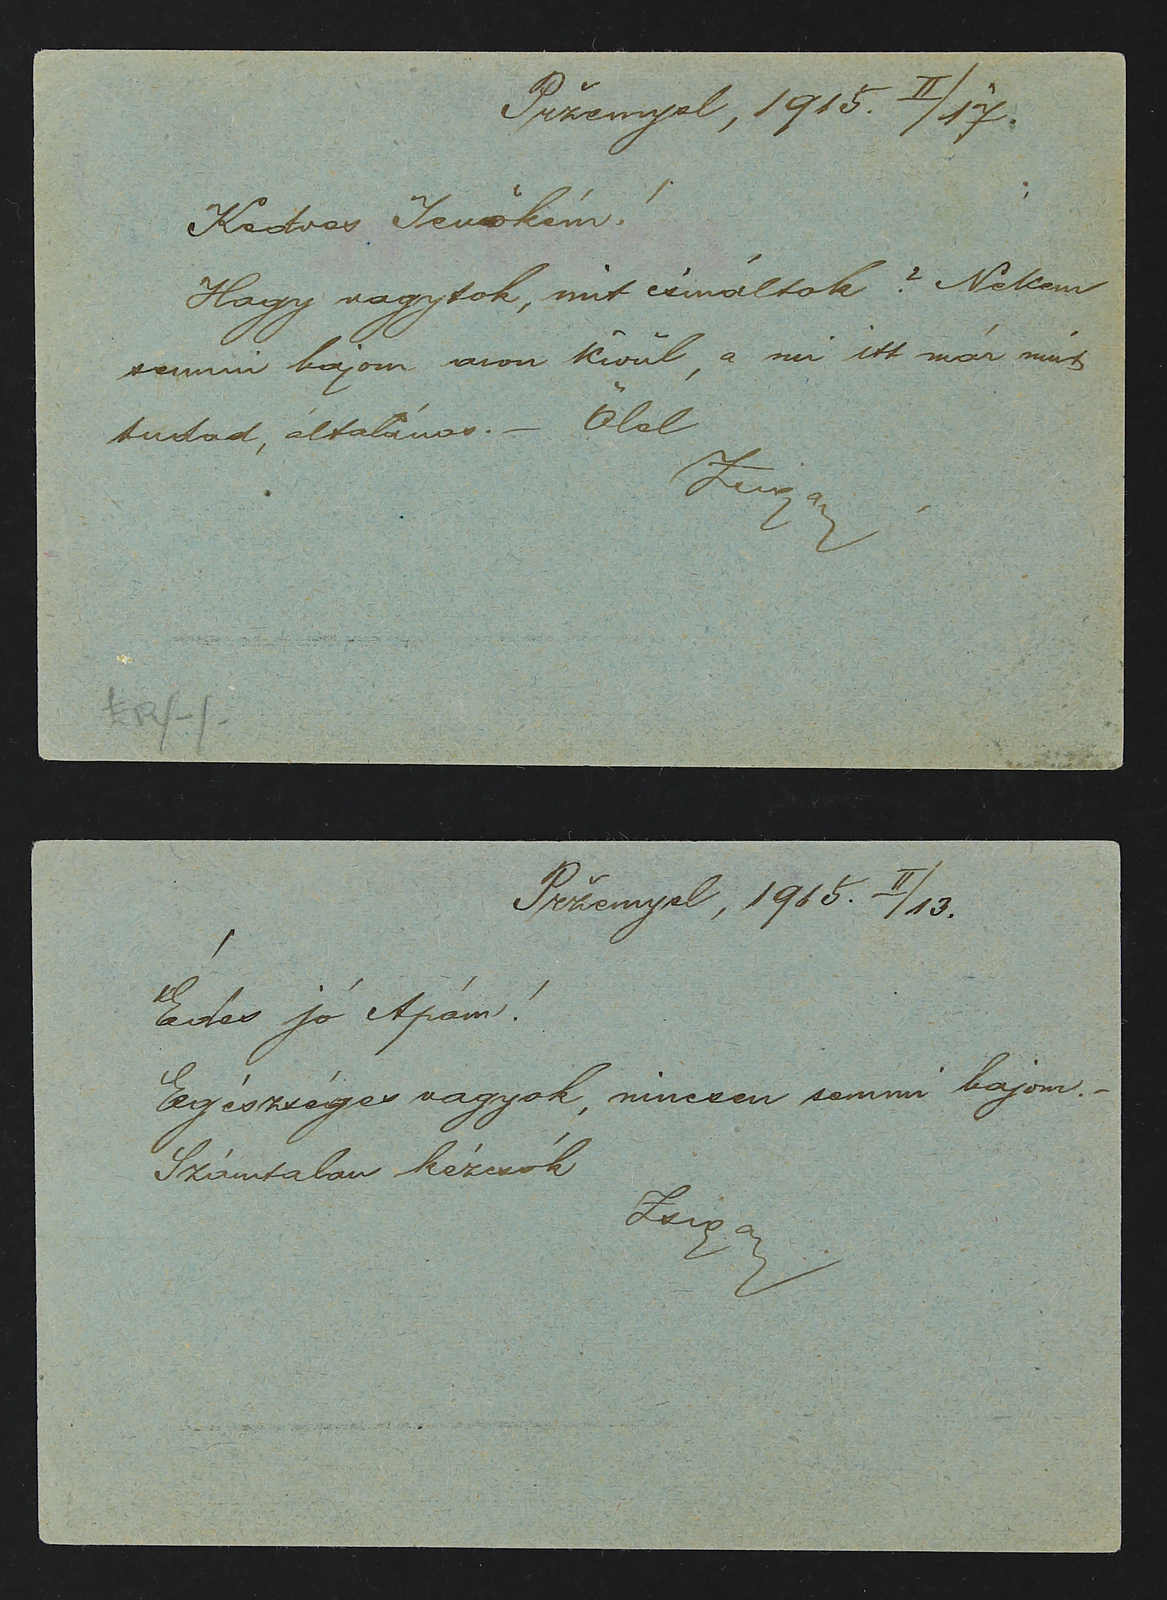 Pržemysl, 1915. II/17.
Kedves Jenőkém!
Hogy vagytok, mit csináltok? Nekem
semmi bajom azon kívül, a mi itt már mint
tudod, általános. – Ölel
Zsiga
Pržemysl, 1915. II/13.
Édes jó Apám!
Egészséges vagyok, nincsen semmi bajom. –
Számtalan kézcsók
Zsiga